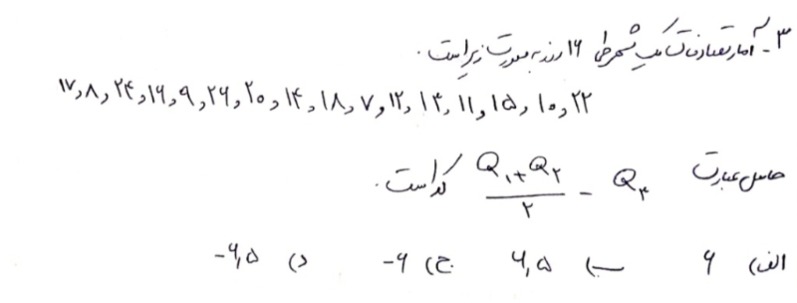 ۳ـ آمار تعداد تماس تلفنی ۱۶ روز به صورت زیر است.
۲۲ , ۱۰ , ۱۵ , ۱۱ , ۱۴ , ۱۲ , ۷ , ۱۸ , ۱۴ , ۲۰ , ۲۶ , ۹ , ۱۶ , ۲۴ , ۸ , ۱۷
حاصل عبارت (Q۱+Q۲)/۲ − Q۳ کدام است.
الف) ۶ ب) ۶,۵ ج) ۶- د) ۶,۵-